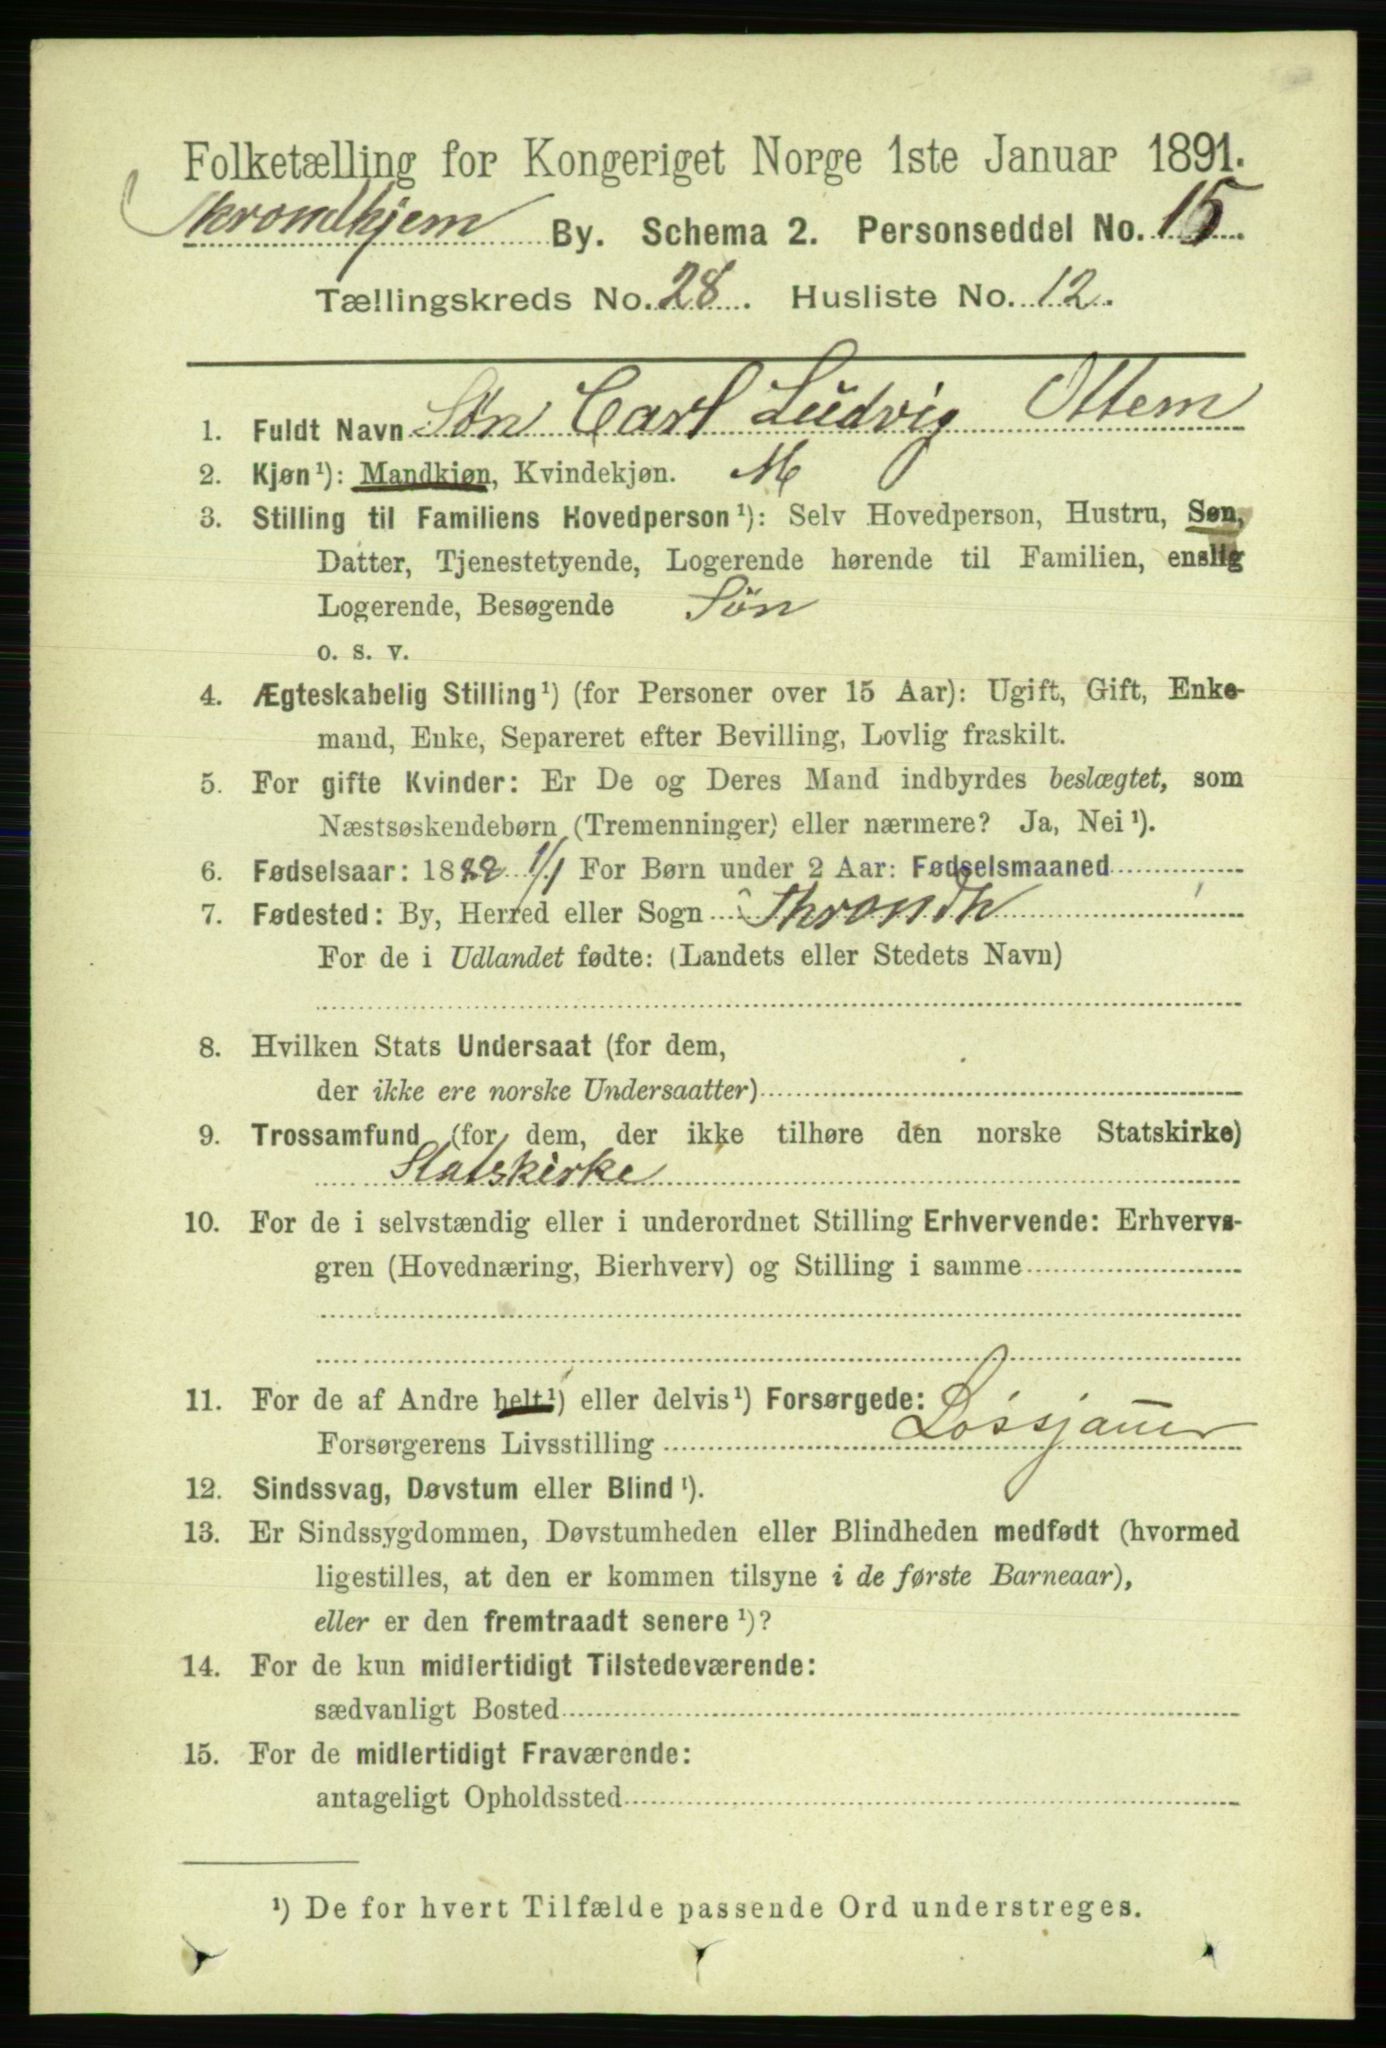 Folketælling for Kongeriget Norge 1ste Januar 1891.
Throndhjem By. Schema 2. Personseddel No. 15.
Tællingskreds No. 28. Husliste No. 12.
1. Fuldt Navn Søn Carl Ludvig Ottem
2. Kjøn¹): Mandkjøn, Kvindekjøn. M
3. Stilling til Familiens Hovedperson¹): Selv Hovedperson, Hustru, Søn,
Datter, Tjenestetyende, Logerende hørende til Familien, enslig
Logerende, Besøgende Søn
o. s. v.
4. Ægteskabelig Stilling¹) (for Personer over 15 Aar): Ugift, Gift, Enke-
mand, Enke, Separeret efter Bevilling, Lovlig fraskilt.
5. For gifte Kvinder: Er De og Deres Mand indbyrdes beslægtet, som
Næstsøskendebørn (Tremenninger) eller nærmere? Ja, Nei¹).
6. Fødselsaar: 1882 1/1 For Børn under 2 Aar: Fødselsmaaned
7. Fødested: By, Herred eller Sogn Throndh
For de i Udlandet fødte: (Landets eller Stedets Navn)
8. Hvilken Stats Undersaat (for dem,
der ikke ere norske Undersaatter)
9. Trossamfund (for dem, der ikke tilhøre den norske Statskirke)
Statskirke
10. For de i selvstændig eller i underordnet Stilling Erhvervende: Erhvervs-
gren (Hovednæring, Bierhverv) og Stilling i samme
11. For de af Andre helt¹) eller delvis¹) Forsørgede:
Forsørgerens Livsstilling Løssjauer
12. Sindssvag, Døvstum eller Blind¹).
13. Er Sindssygdommen, Døvstumheden eller Blindheden medfødt (hvormed
ligestilles, at den er kommen tilsyne i de første Barneaar),
eller er den fremtraadt senere¹)?
14. For de kun midlertidigt Tilstedeværende:
sædvanligt Bosted
15. For de midlertidigt Fraværende:
antageligt Opholdssted
¹) De for hvert Tilfælde passende Ord understreges.